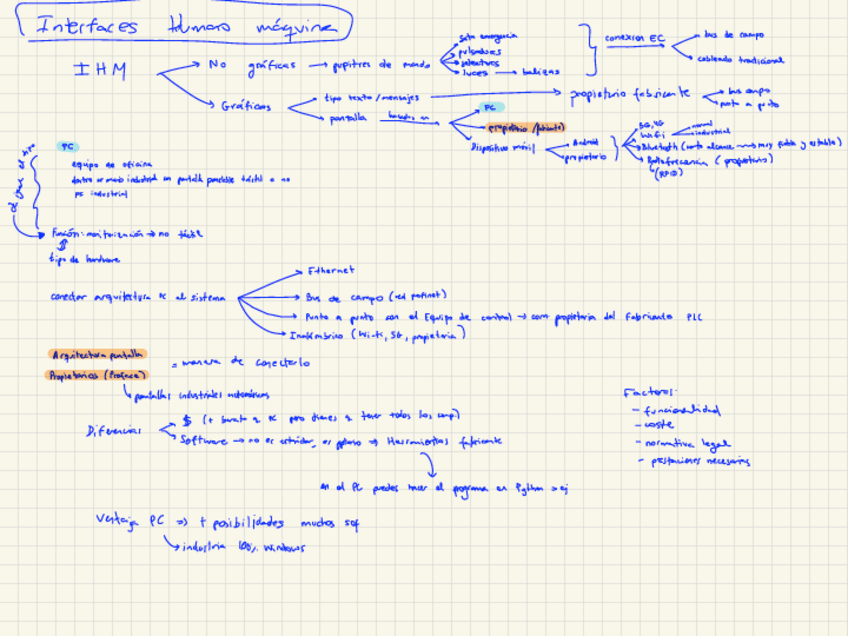 Interfaces Humano máquina
IHM
No gráficas → pupitres de mando
seta emergencia
pulsadores
selectores
luces → balizas
conexion EC
bus de campo
cableado tradicional
Gráficas
tipo texto/mensajes → propietario fabricante
bus campo
punto a punto
pantalla basados en
PC
propietario (fabricante)
Dispositivo móvil
Android
propietario
5G, 4G
Wifi
normal
industrial
Bluetooth (corto alcance → muy fiable y estable)
Radiofrecuencia (propietario)
(RFID)
PC
equipo de oficina
dentro armario industrial en pantalla panelable táctil o no
PC industrial
Función: monitorización → no táctil
tipo de hardware
conectar arquitectura PC al sistema
Ethernet
Bus de campo (red profinet)
Punto a punto con el Equipo de control → com propietaria del fabricante PLC
Inalámbrico (Wi-fi, 5G, propietaria)
Arquitectura pantalla
Propietarios (Proface)
= manera de conectarlo
pantallas industriales
Diferencias
$ (+ barato q PC pero tienes q tener todos los comp.)
Software → no es estándar, es → Herramientas fabricante
en el PC puedes hacer el programa en Python → ej
Ventaja PC => + posibilidades muchos sof
industria 100% windows
Factores:
- funcionalidad
- coste
- normativa legal
- prestaciones necesarias